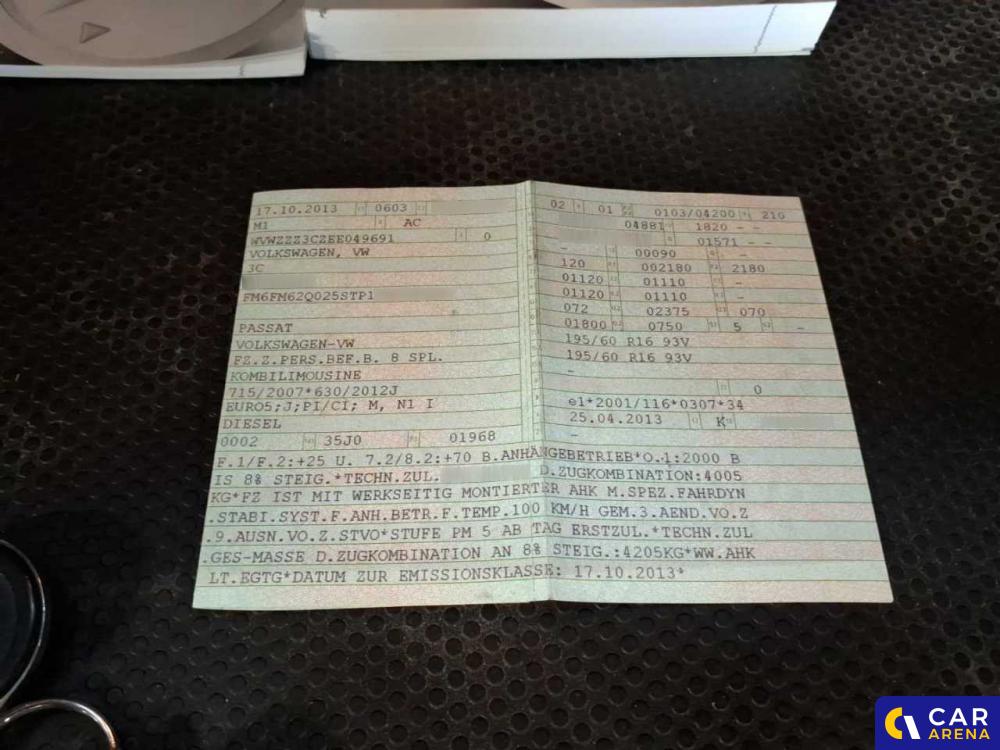 17.10.2013 0603
M1 AC
WVWZZZ3CZEE049691 0
VOLKSWAGEN, VW
3C
FM6FM62Q025STP1
PASSAT
VOLKSWAGEN-VW
FZ.Z.PERS.BEF.B. 8 SPL.
KOMBILIMOUSINE
715/2007*630/2012J
EURO5;J;PI/CI; M, N1 I
DIESEL
0002 35J0 01968
02 01 0103/04200 210
04881 1820 - -
01571 - -
- 00090 -
120 002180 2180
01120 01110 -
01120 01110 -
072 02375 070
01800 0750 5 -
195/60 R16 93V
195/60 R16 93V
-
0
e1*2001/116*0307*34
25.04.2013 K
-
F.1/F.2:+25 U. 7.2/8.2:+70 B.ANHÄNGEBETRIEB*O.1:2000 B
IS 8% STEIG.*TECHN.ZUL. D.ZUGKOMBINATION:4005
KG*FZ IST MIT WERKSEITIG MONTIERTER AHK M.SPEZ.FAHRDYN
.STABI.SYST.F.ANH.BETR.F.TEMP.100 KM/H GEM.3.AEND.VO.Z
.9.AUSN.VO.Z.STVO*STUFE PM 5 AB TAG ERSTZUL.*TECHN.ZUL
.GES-MASSE D.ZUGKOMBINATION AN 8% STEIG.:4205KG*WW.AHK
LT.EGTG*DATUM ZUR EMISSIONSKLASSE: 17.10.2013*
CAR
ARENA